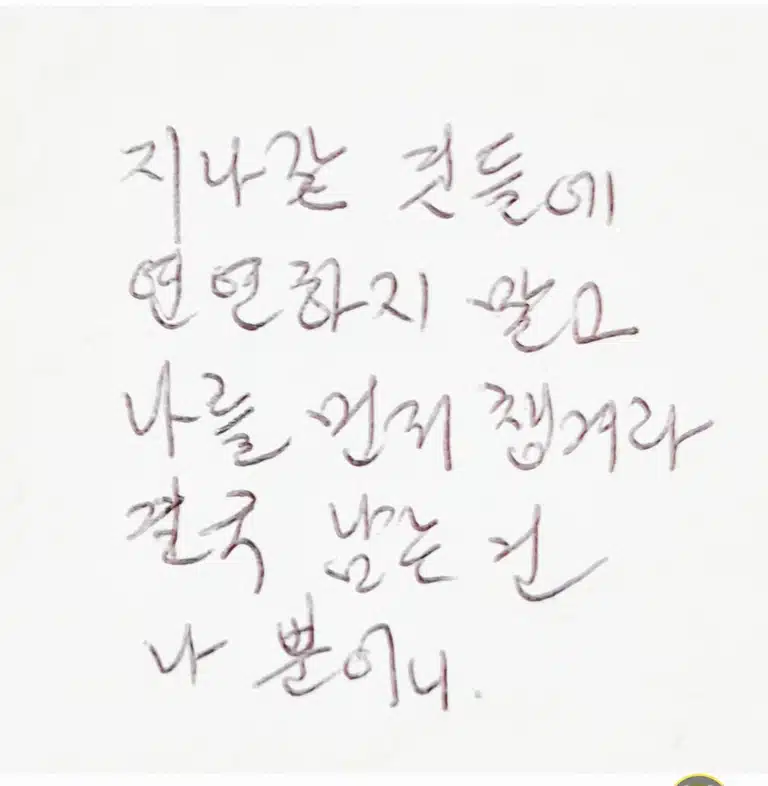 지나갈 것들에
연연하지 말고
나를 먼저 챙겨라
결국 남는 건
나 뿐이니.